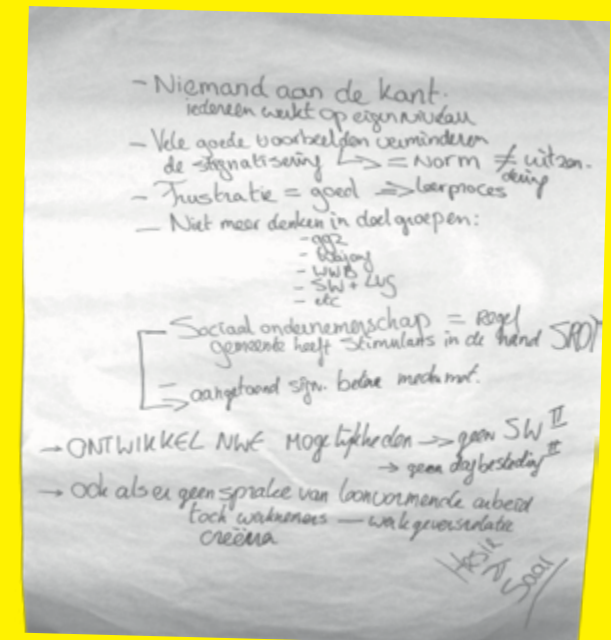 - Niemand aan de kant.
iedereen werkt op eigen niveau
- Vele goede voorbeelden verminderen
de stigmatisering ↳> = Norm ≠ uitzon-
dering
- Frustratie = goed => leerproces
- Niet meer denken in doelgroepen:
- ggz
- Wajong
- WWB
- SW + LVG
- etc
- Sociaal ondernemerschap = Regel
gemeente heeft stimulans in de hand SROI
- aangetoond zijn. betere
→ ONTWIKKEL NWE Mogelijkheden —> geen SW II
→ geen dagbesteding II
→ Ook als er geen sprake van loonvormende arbeid
toch werknemers — werkgeversrelatie
creëren
Saar